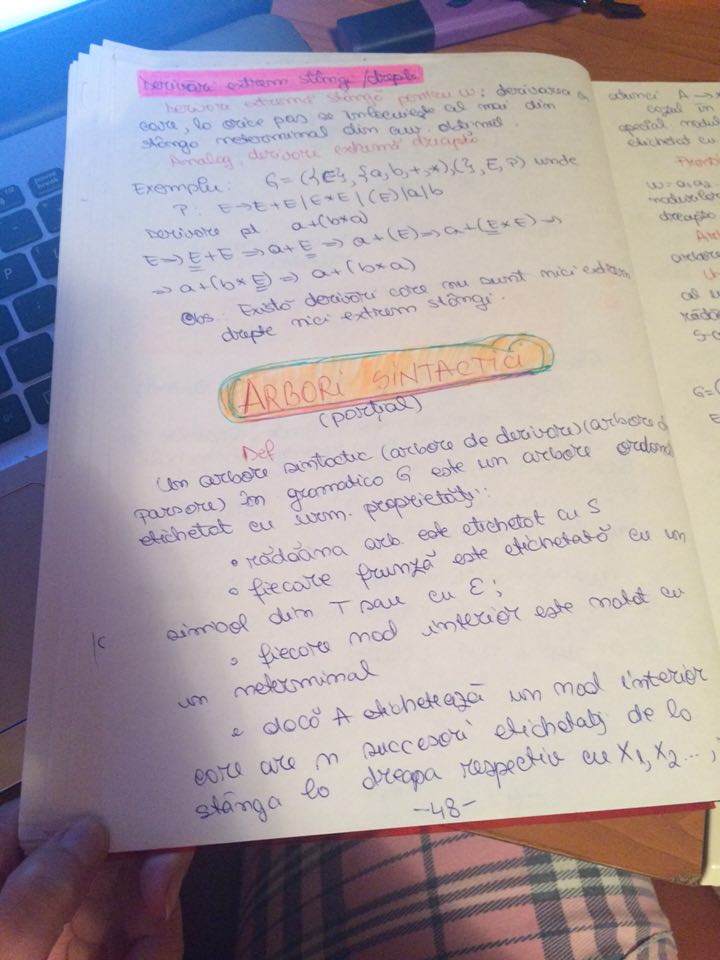 Derivări extrem stângi/drepte
Derivare extremă stângă pentru w: derivarea în
care, la orice pas se înlocuiește cel mai din
stânga neterminal din cuv. obținut.
Analog, derivare extremă dreaptă
Exemplu: G=({E}, {a,b,+,×,(,)}, E, P) unde
P: E→E+E|E×E|(E)|a|b
Derivare pt. a+(b×a)
E⇒E+E⇒a+E⇒a+(E)⇒a+(E×E)⇒
⇒a+(b×E)⇒a+(b×a)
Obs: Există derivări care nu sunt nici extrem
drepte nici extrem stângi.
ARBORI SINTACTICI
(parțial)
Def
Un arbore sintactic (arbore de derivare)(arbore d
parsare) în gramatica G este un arbore ordonat
etichetat cu urm. proprietăți:
• rădăcina arb. este etichetat cu S
• fiecare frunză este etichetată cu un
simbol din T sau cu ε;
• fiecare nod interior este notat cu
un neterminal
• dacă A etichetează un nod interior
care are n succesori etichetați de la
stânga la dreapa respectiv cu X1, X2...,
-48-
atunci A→
cazul în
special nodul
etichetat cu
Front
w=a1a2
nodurilor
dreapta
arbore
al u
rădă
G=(
E